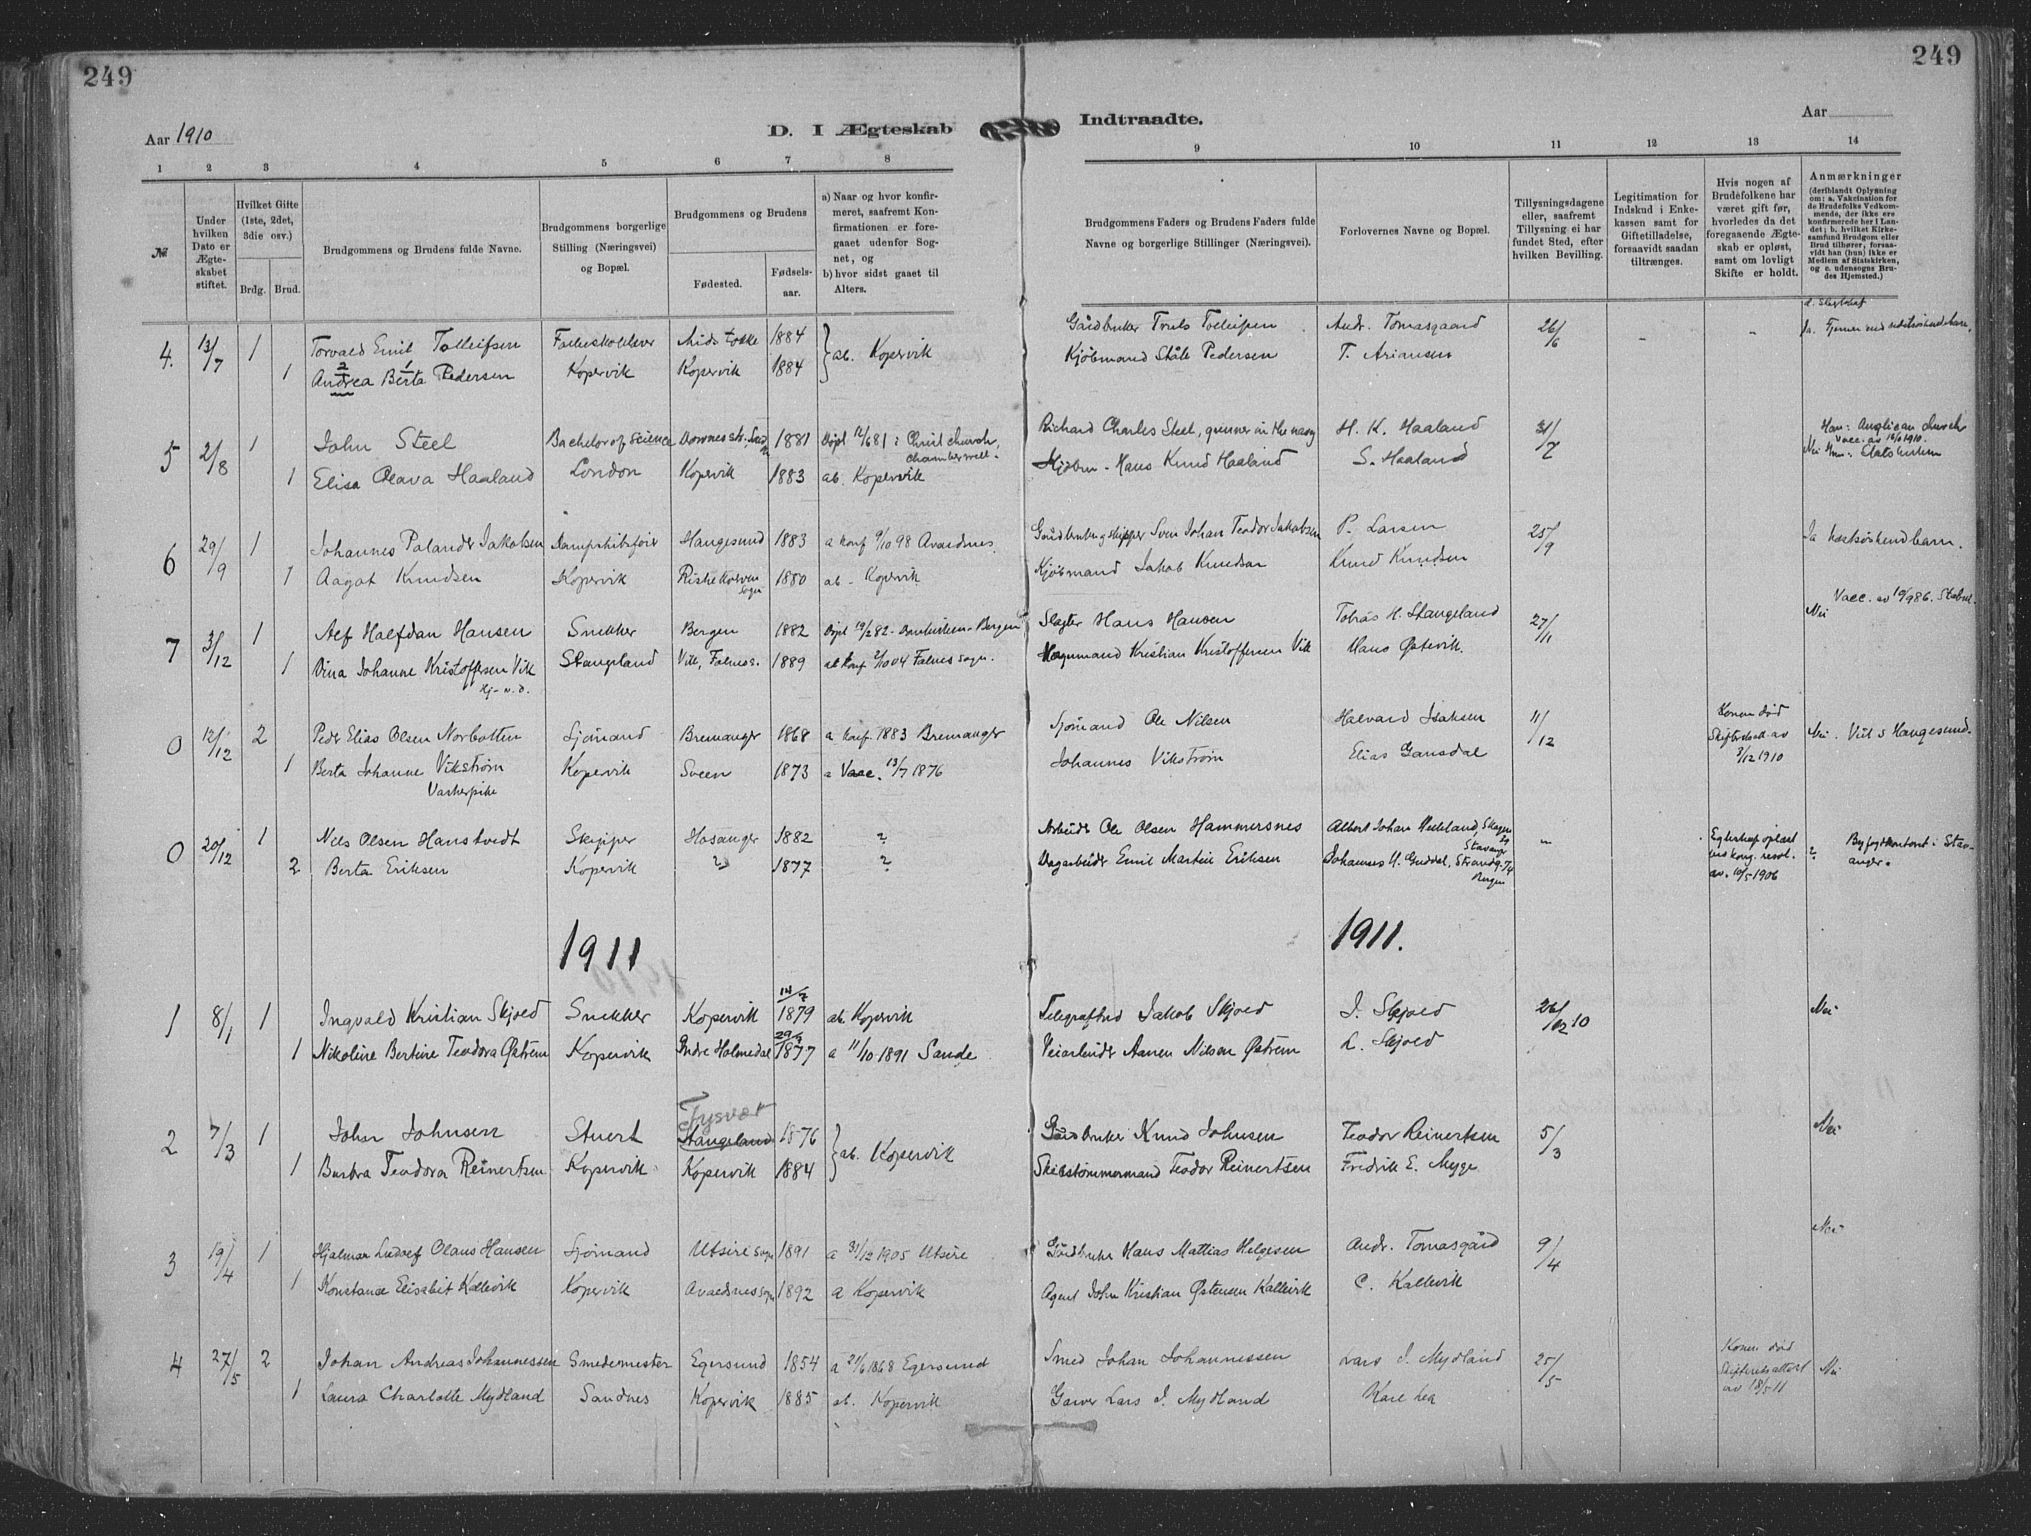 249
249
Aar 1910
D. I Ægteskab
Indtraadte.
Aar
1 2 3 4 5 6 7 8
9 10 11 12 13 14
№
Under hvilken Dato er Ægteskabet stiftet.
Hvilket Gifte (1ste, 2det, 3die osv.)
Brdg. Brud.
Brudgommens og Brudens fulde Navne.
Brudgommens borgerlige Stilling (Næringsvei) og Bopæl.
Brudgommens og Brudens
Fødested.
Fødselsaar.
a) Naar og hvor konfirmeret, saafremt Konfirmationen er foregaaet udenfor Sognet, og
b) hvor sidst gaaet til Alters.
Brudgommens Faders og Brudens Faders fulde Navne og borgerlige Stillinger (Næringsvei).
Forlovernes Navne og Bopæl.
Tillysningsdagene eller, saafremt Tillysning ei har fundet Sted, efter hvilken Bevilling.
Legitimation for Indskud i Enkekassen samt for Giftetilladelse, forsaavidt saadan tiltrænges.
Hvis nogen af Brudefolkene har været gift før, hvorledes da det foregaaende Ægteskab er opløst, samt om lovligt Skifte er holdt.
Anmærkninger
(deriblandt Oplysning om: a. Vakcination for de Brudefolks Vedkommende, der ikke ere konfirmerede her i Landet; b. hvilket Kirkesamfund Brudgom eller Brud tilhører, forsaavidt han (hun) ikke er Medlem af Statskirken, og c. udensogns Brudes Hjemsted.)
4. 13/7 1 Torvald Emil Tolleifsen 1884 ab. Kopervik Gårdbruker Truls Tolleifsen Andr. Tomasgaard 26/6
1 Andrea Berta Pedersen Kopervik Kopervik 1884 Kjøbmand Ståle Pedersen T. Ariansen
5 2/8 1 John Steel Bachelor of Science 1881 Døpt 12/6 81 i Christ church, Richard Charles Steel, gunner in the navy H. K. Haaland 31/7 Han: Anglican church
1 Elisa Olava Haaland London Kopervik 1883 ab. Kopervik Kjøbm. Hans Knud Haaland S. Haaland
6 29/9 1 Johannes Palander Jakobsen Dampskibsfører Haugesund 1883 a konf 9/10 98 Avaldsnes Gårdbruker og skipper Sven Johan Teodor Jakobsen P. Larsen 25/9 Ja næstsøskendbarn.
1 Aagot Knudsen Kopervik 1880 ab. Kopervik Kjøbmand Jakob Knudsen Knud Knudsen
7 3/12 1 Alf Halfdan Hansen Snekker Bergen 1882 Døpt 19/2 82 Bergen Slagter Hans Hansen Tobias H. Stangeland 27/11 Nei
1 Dina Johanne Kristoffersen Vik Stangeland Vik, Falnes s. 1889 ab konf 2/10 04 Falnes sogn. Kristian Kristoffersen Vik Hans Østevik.
0 12/12 2 Peder Elias Olsen Norbotten Sjømand Bremanger 1868 a konf. 1883 Bremanger Sjømand Ole Nilsen Halvard Isaksen 11/12 Konen død Skifteattest av 3/12 1910 Nei. Viet i Haugesund.
1 Berta Johanne Vikstrøm Kopervik Sveen 1873 a Vacc. 13/7 1876 Johannes Vikstrøm Elias Gamsdal
Vaskerpike
0 20/12 1 Nels Olsen Hanstvedt Skipper Hosanger 1882 ? Arbeider Ole Olsen Hammersnes – Byfogdkontoret i Stavanger.
2 Berta Eriksen Kopervik ? 1877 ? Dagarbeider Emil Martin Eriksen
Egteskap opløst ved kong. resol. av. 10/5 1906 ?
1911 1911.
1 8/1 1 Ingvald Kristian Skjold Snekker Kopervik 14/7 1879 ab. Kopervik Telegrafbud Jakob Skjold J. Skjold 26/12 10 Nei
1 Nikoline Bertine Teodora Østrem Kopervik Indre Holmedal 29/9 1877 a 11/10 1891 Sande Veiarbeider Aanen Nilsen Østrem L. Skjold
2 7/3 1 John Johnsen Stuert Tysvær Stangeland 1876 ab. Kopervik Gårdbruker Knud Johnsen Teodor Reinertsen 5/3 Nei
1 Barbra Teodora Reinertsen Kopervik Kopervik 1884 Skibstømmermand Teodor Reinertsen Fredrik E. Myge
3 19/4 1 Hjalmar Ludolf Olaus Hansen Sjømand Utsire sogn 1891 a 31/12 1905 Utsire Gårdbruker Hans Mattias Helgesen Andr. Tomasgård 9/4 Nei
1 Konstanse Elisabet Kallevik Kopervik Avaldsnes sogn 1892 a Kopervik Agent John Kristian Østensen Kallevik C. Kallevik
4 27/5 2 Johan Andreas Johannessen Smedemester Egersund 1854 a 21/6 1868 Egersund Smed Johan Johannessen Lars J. Mydland 25/5 Konen død Skifteretsattest av 18/5 11 Nei
1 Laura Charlotte Mydland Sandnes Kopervik 1885 ab. Kopervik Garver Lars J. Mydland Karl Lea